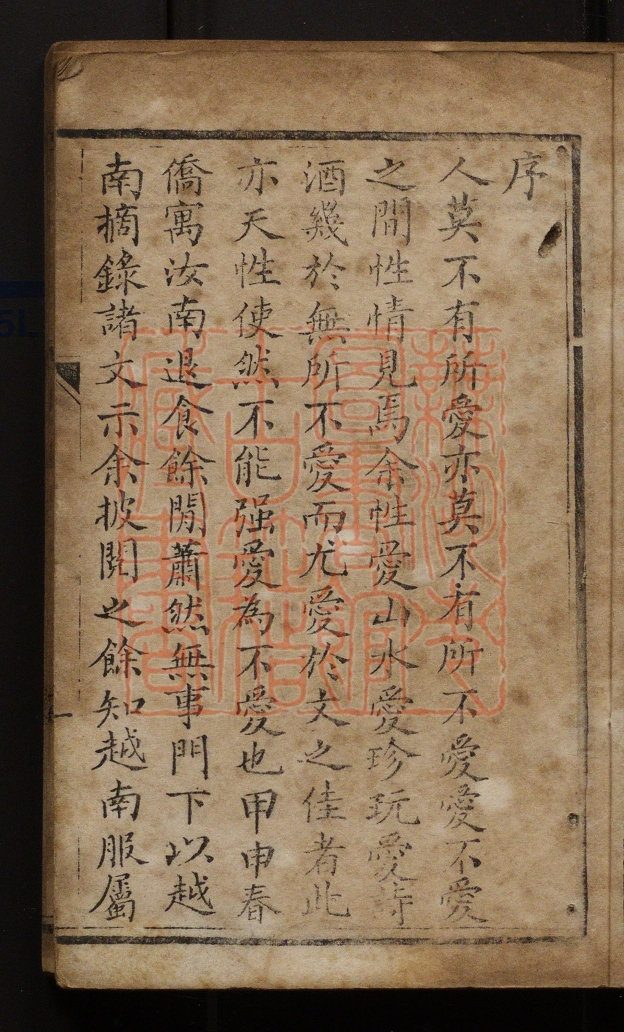 序
人莫不有所愛亦莫不有所不愛愛不愛
之間性情見焉余性愛山水愛珍玩愛詩
酒幾於無所不愛而尤愛於文之佳者此
亦天性使然不能强愛為不愛也甲申春
僑寓汝南退食餘閒蕭然無事門下以越
南摘錄諸文示余披閱之餘知越南服屬